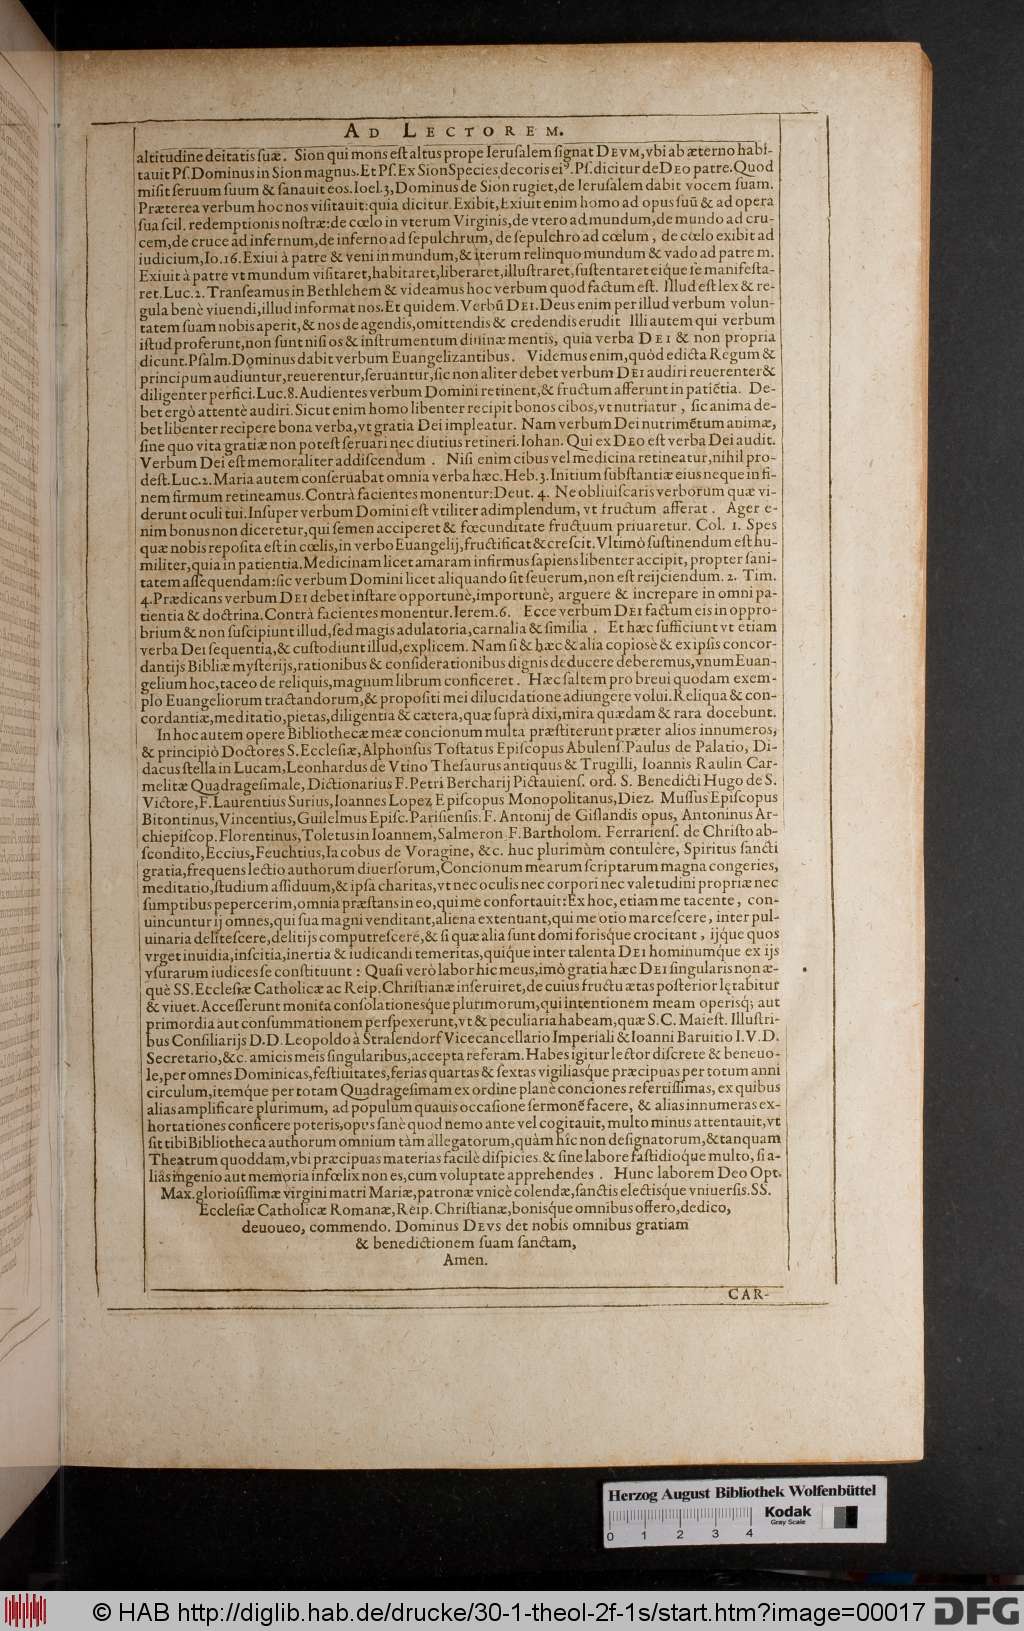 AD LECTOREM.
altitudine deitatis suæ. Sion qui mons est altus prope Ierusalem signat DEVM, vbi ab æterno habi-
tauit Ps. Dominus in Sion magnus. Et Ps. Ex Sion Species decoris eiꝰ. Ps. dicitur de DEO patre. Quod
misit seruum suum & sanauit eos. Ioel. 3, Dominus de Sion rugiet, de Ierusalem dabit vocem suam.
Præterea verbum hoc nos visitauit: quia dicitur. Exibit, Exiuit enim homo ad opus suũ & ad opera
sua scil. redemptionis nostræ: de cœlo in vterum Virginis, de vtero ad mundum, de mundo ad cru-
cem, de cruce ad infernum, de inferno ad sepulchrum, de sepulchro ad cœlum, de cœlo exibit ad
iudicium, Io. 16. Exiui à patre & veni in mundum, & iterum relinquo mundum & vado ad patrem.
Exiuit à patre vt mundum visitaret, habitaret, liberaret, illustraret, sustentaret eiq́ue se manifesta-
ret. Luc. 2. Transeamus in Bethlehem & videamus hoc verbum quod factum est. Illud est lex & re-
gula benè viuendi, illud informat nos. Et quidem. Verbũ DEI. Deus enim per illud verbum volun-
tatem suam nobis aperit, & nos de agendis, omittendis & credendis erudit Illi autem qui verbum
istud proferunt, non sunt nisi os & instrumentum diuinæ mentis, quia verba DEI & non propria
dicunt. Psalm. Dominus dabit verbum Euangelizantibus. Videmus enim, quòd edicta Regum &
principum audiuntur, reuerentur, seruantur, sic non aliter debet verbum DEI audiri reuerenter &
diligenter perfici. Luc. 8. Audientes verbum Domini retinent, & fructum afferunt in patiẽtia. De-
bet ergò attentè audiri. Sicut enim homo libenter recipit bonos cibos, vt nutriatur, sic anima de-
bet libenter recipere bona verba, vt gratia Dei impleatur. Nam verbum Dei nutrimẽtum animæ,
sine quo vita gratiæ non potest seruari nec diutius retineri. Iohan. Qui ex DEO est verba Dei audit.
Verbum Dei est memoraliter addiscendum. Nisi enim cibus vel medicina retineatur, nihil pro-
dest. Luc. 2. Maria autem conseruabat omnia verba hæc. Heb. 3. Initium substantiæ eius neque in fi-
nem firmum retineamus. Contrà facientes monentur: Deut. 4. Ne obliuiscaris verborum quæ vi-
derunt oculi tui. Insuper verbum Domini est vtiliter adimplendum, vt fructum afferat. Ager e-
nim bonus non diceretur, qui semen acciperet & fœcunditate fructuum priuaretur. Col. 1. Spes
quæ nobis reposita est in cœlis, in verbo Euangelij, fructificat & crescit. Vltimò sustinendum est hu-
militer, quia in patientia. Medicinam licet amaram infirmus sapiens libenter accipit, propter sani-
tatem assequendam: sic verbum Domini licet aliquando sit seuerum, non est reijciendum. 2. Tim.
4. Prædicans verbum DEI debet instare opportunè, importunè, arguere & increpare in omni pa-
tientia & doctrina. Contrà facientes monentur. Ierem. 6. Ecce verbum DEI factum eis in oppro-
brium & non suscipiunt illud, sed magis adulatoria, carnalia & similia. Et hæc sufficiunt vt etiam
verba DEI sequentia, & custodiunt illud, explicem. Nam si & hæc & alia copiosè & ex ipsis concor-
dantijs Bibliæ mysterijs, rationibus & considerationibus dignis deducere deberemus, vnum Euan-
gelium hoc, taceo de reliquis, magnum librum conficeret. Hæc saltem pro breui quodam exem-
plo Euangeliorum tractandorum, & propositi mei dilucidatione adiungere volui. Reliqua & con-
cordantiæ, meditatio, pietas, diligentia & cætera, quæ suprà dixi, mira quædam & rara docebunt.
In hoc autem opere Bibliothecæ meæ concionum multa præstiterunt præter alios innumeros,
& principiò Doctores S. Ecclesiæ, Alphonsus Tostatus Episcopus Abulens. Paulus de Palatio, Di-
dacus stella in Lucam, Leonhardus de Vtino Thesaurus antiquus & Trugilli, Ioannis Raulin Car-
melitæ Quadragesimale, Dictionarius F. Petri Bercharij Pictauiens. ord. S. Benedicti Hugo de S.
Victore, F. Laurentius Surius, Ioannes Lopez Episcopus Monopolitanus, Diez. Mussus Episcopus
Bitontinus, Vincentius, Guilelmus Episc. Parisiensis. F. Antonij de Gislandis opus, Antoninus Ar-
chiepiscop. Florentinus, Toletus in Ioannem, Salmeron. F. Bartholom. Ferrariens. de Christo ab-
scondito, Eccius, Feuchtius, Iacobus de Voragine, &c. huc plurimùm contulêre, Spiritus sancti
gratia, frequens lectio authorum diuersorum, Concionum mearum scriptarum magna congeries,
meditatio, studium assiduum, & ipsa charitas, vt nec oculis nec corpori nec valetudini propriæ nec
sumptibus pepercerim, omnia præstans in eo, qui me confortauit: Ex hoc, etiam me tacente, con-
uincuntur ij omnes, qui sua magni venditant, aliena extenuant, qui me otio marcescere, inter pul-
uinaria delitescere, delitijs computrescere, & si quæ alia sunt domi forisq́ue crocitant, ijq́ue quos
vrget inuidia, inscitia, inertia & iudicandi temeritas, quiq́ue inter talenta DEI hominumq́ue ex ijs
vsurarum iudices se constituunt: Quasi verò labor hic meus, imò gratia hæc DEI singularis non æ-
què SS. Ecclesiæ Catholicæ ac Reip. Christianæ inseruiret, de cuius fructu ætas posterior lętabitur
& viuet. Accesserunt monita consolationesq́ue plurimorum, qui intentionem meam operisq́; aut
primordia aut consummationem perspexerunt, vt & peculiaria habeam, quæ S.C. Maiest. Illustri-
bus Consiliarijs D.D. Leopoldo à Stralendorf Vicecancellario Imperiali & Ioanni Baruitio I.V.D.
Secretario, &c. amicis meis singularibus, accepta referam. Habes igitur lector discrete & beneuo-
le, per omnes Dominicas, festiuitates, ferias quartas & sextas vigiliasq́ue præcipuas per totum anni
circulum, itemq́ue per totam Quadragesimam ex ordine planè conciones refertissimas, ex quibus
alias amplificare plurimum, ad populum quauis occasione sermonẽ facere, & alias innumeras ex-
hortationes conficere poteris, opus sanè quod nemo ante vel cogitauit, multo minus attentauit, vt
sit tibi Bibliotheca authorum omnium tàm allegatorum, quàm hîc non designatorum, & tanquam
Theatrum quoddam, vbi præcipuas materias facilè dispicies. & sine labore fastidioq́ue multo, si a-
liàs ingenio aut memoria infœlix non es, cum voluptate apprehendes. Hunc laborem Deo Opt.
Max. gloriosissimæ virgini matri Mariæ, patronæ vnicè colendæ, sanctis electisq́ue vniuersis. SS.
Ecclesiæ Catholicæ Romanæ, Reip. Christianæ, bonisq́ue omnibus offero, dedico,
deuoueo, commendo. Dominus DEVS det nobis omnibus gratiam
& benedictionem suam sanctam,
Amen.
CAR-
Herzog August Bibliothek Wolfenbüttel
Kodak
Gray Scale
0 1 2 3 4
© HAB http://diglib.hab.de/drucke/30-1-theol-2f-1s/start.htm?image=00017
DFG